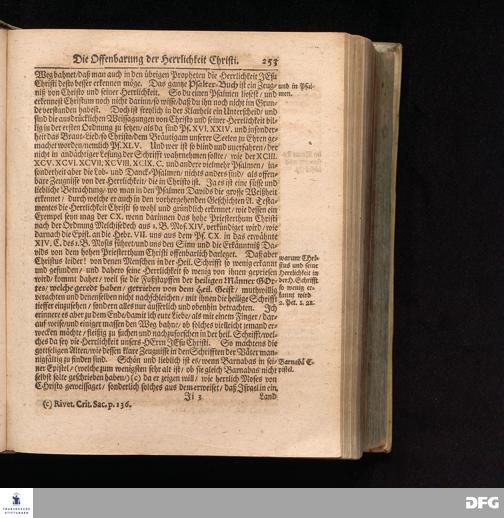 Die Offenbarung der Herrlichkeit Christi. 253
Weg bahnet/daß man auch in den übrigen Propheten die Herrlichkeit JEsu
Christi desto besser erkennen möge. Das gantze Psalter-Buch ist ein Zeug-
niß von Christo und seiner Herrlichkeit. So du einen Psalmen liesest/ und
erkennest Christum noch nicht darinn/so wisse/daß du ihn noch nicht im Grun-
de verstanden habest. Doch ist freylich in der Klarheit ein Unterscheid/ und
sind die ausdrücklichen Weissagungen von Christo und seiner Herrlichkeit bil-
lig in der ersten Ordnung zu sehen/ als da sind Ps. XVI. XXIV. und insonder-
heit das Braut-Lied/so Christo dem Bräutigam unserer Seelen zu Ehren ge-
machet worden/nemlich Ps. XLV. Und wer ist so blind und unerfahren/ der
nicht in andächtiger Lesung der Schrifft wahrnehmen solte/ wie der XCIII.
XCV. XCVI. XCVII. XCVIII. XCIX. C. und andere vielmehr Psalmen/ in-
sonderheit aber die Lob- und Danck-Psalmen/ nichts anders sind/ als offen-
bare Zeugnisse von der Herrlichkeit/ die in Christo ist. Ja es ist eine süsse und
liebliche Betrachtung/ wo man in den Psalmen Davids die grosse Weißheit
erkennet/ durch welche er auch in den vorhergehenden Geschichten A. Testa-
mentes die Herrlichkeit Christi so wohl und gründlich erkennet/ wie dessen ein
Exempel seyn mag der CX. wenn darinnen das hohe Priesterthum Christi
nach der Ordnung Melchisedech aus 1. B. Mos. XIV. verkündiget wird/ wie
darnach die Epist. an die Hebr. VII. uns aus dem Ps. CX. in das erwähnte
XIV. C. des 1. B. Mosis führet/und uns den Sinn und die Erkänntniß Da-
vids von dem hohen Priesterthum Christi offenbarlich darleget. Daß aber
Christus leider! von denen Menschen in der Heil. Schrifft so wenig erkannt
und gefunden/ und dahero seine Herrlichkeit so wenig von ihnen gepriesen
wird/ kommt daher/ weil sie die Fußstapffen der heiligen Männer GOt-
tes/ welche geredt haben/ getrieben von dem Heil. Geist/ muthwillig
verachten und denenselben nicht nachschleichen/ mit ihnen die heilige Schrifft
tieffer einzusehen/ sondern alles nur äusserlich und obenhin betrachten. Ich
erinnere es aber zu dem Ende/damit ich eure Liebe/ als mit einem Finger/ dar-
auf weise/ und einiger massen den Weg bahne/ ob solches vielleicht jemand er-
wecken möchte/ fleißig zu suchen und nachzuforschen in der heil. Schrifft/wel-
ches da sey die Herrlichkeit unsers HErrn JEsu Christi. So machtens die
gottseligen Alten/wie dessen klare Zeugnisse in den Schrifften der Väter man-
nigfältig zu finden sind. Schön und lieblich ist es/ wenn Barnabas in sei-
ner Epistel/ (welche zum wenigsten sehr alt ist/ ob sie gleich Barnabas nicht
selbst solte geschrieben haben/)(c) da er zeigen will/ wie herrlich Moses von
CHristo geweissaget/ sonderlich solches aus dem erweiset/ daß Israel in ein
Ii 3 Land
(c) Rivet. Crit. Sac. p. 136.
und in Psal-
men.
warum Chri-
stus und seine
Herrlichkeit in
der H. Schrifft
so wenig er-
kannt wird
2. Pet. 1. 21.
Barnabä E-
pistel.
FRANCKESCHE
STIFTUNGEN
DFG